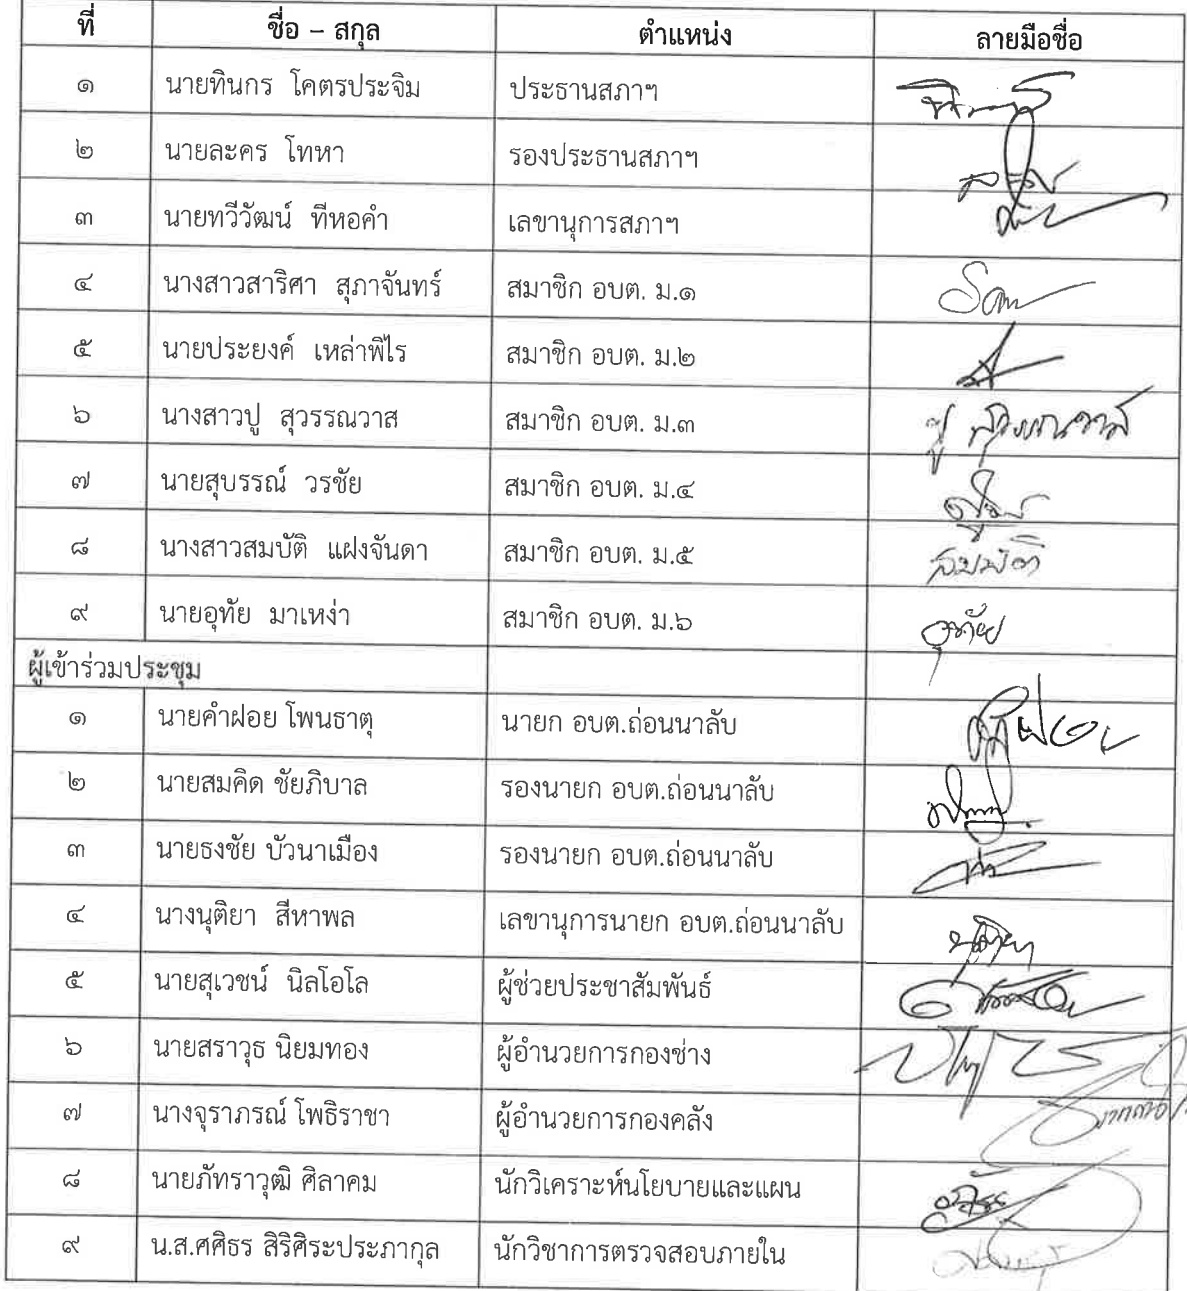 ที่ ชื่อ – สกุล ตำแหน่ง ลายมือชื่อ
๑ นายทินกร โคตรประจิม ประธานสภาฯ
๒ นายละคร โทหา รองประธานสภาฯ
๓ นายทวีวัฒน์ ทีหอคำ เลขานุการสภาฯ
๔ นางสาวสาริศา สุภาจันทร์ สมาชิก อบต. ม.๑
๕ นายประยงค์ เหล่าพิไร สมาชิก อบต. ม.๒
๖ นางสาวปู สุวรรณวาส สมาชิก อบต. ม.๓ ปู สุวรรณวาส
๗ นายสุบรรณ์ วรชัย สมาชิก อบต. ม.๔
๘ นางสาวสมบัติ แฝงจันดา สมาชิก อบต. ม.๕ สมบัติ
๙ นายอุทัย มาเหง่า สมาชิก อบต. ม.๖ อุทัย
ผู้เข้าร่วมประชุม
๑ นายคำฝอย โพนธาตุ นายก อบต.ถ่อนนาลับ
๒ นายสมคิด ชัยภิบาล รองนายก อบต.ถ่อนนาลับ
๓ นายธงชัย บัวนาเมือง รองนายก อบต.ถ่อนนาลับ
๔ นางนุติยา สีหาพล เลขานุการนายก อบต.ถ่อนนาลับ
๕ นายสุเวชน์ นิลโอโล ผู้ช่วยประชาสัมพันธ์
๖ นายสราวุธ นิยมทอง ผู้อำนวยการกองช่าง
๗ นางจุราภรณ์ โพธิราชา ผู้อำนวยการกองคลัง
๘ นายภัทราวุฒิ ศิลาคม นักวิเคราะห์นโยบายและแผน
๙ น.ส.ศศิธร สิริศิระประภากุล นักวิชาการตรวจสอบภายใน